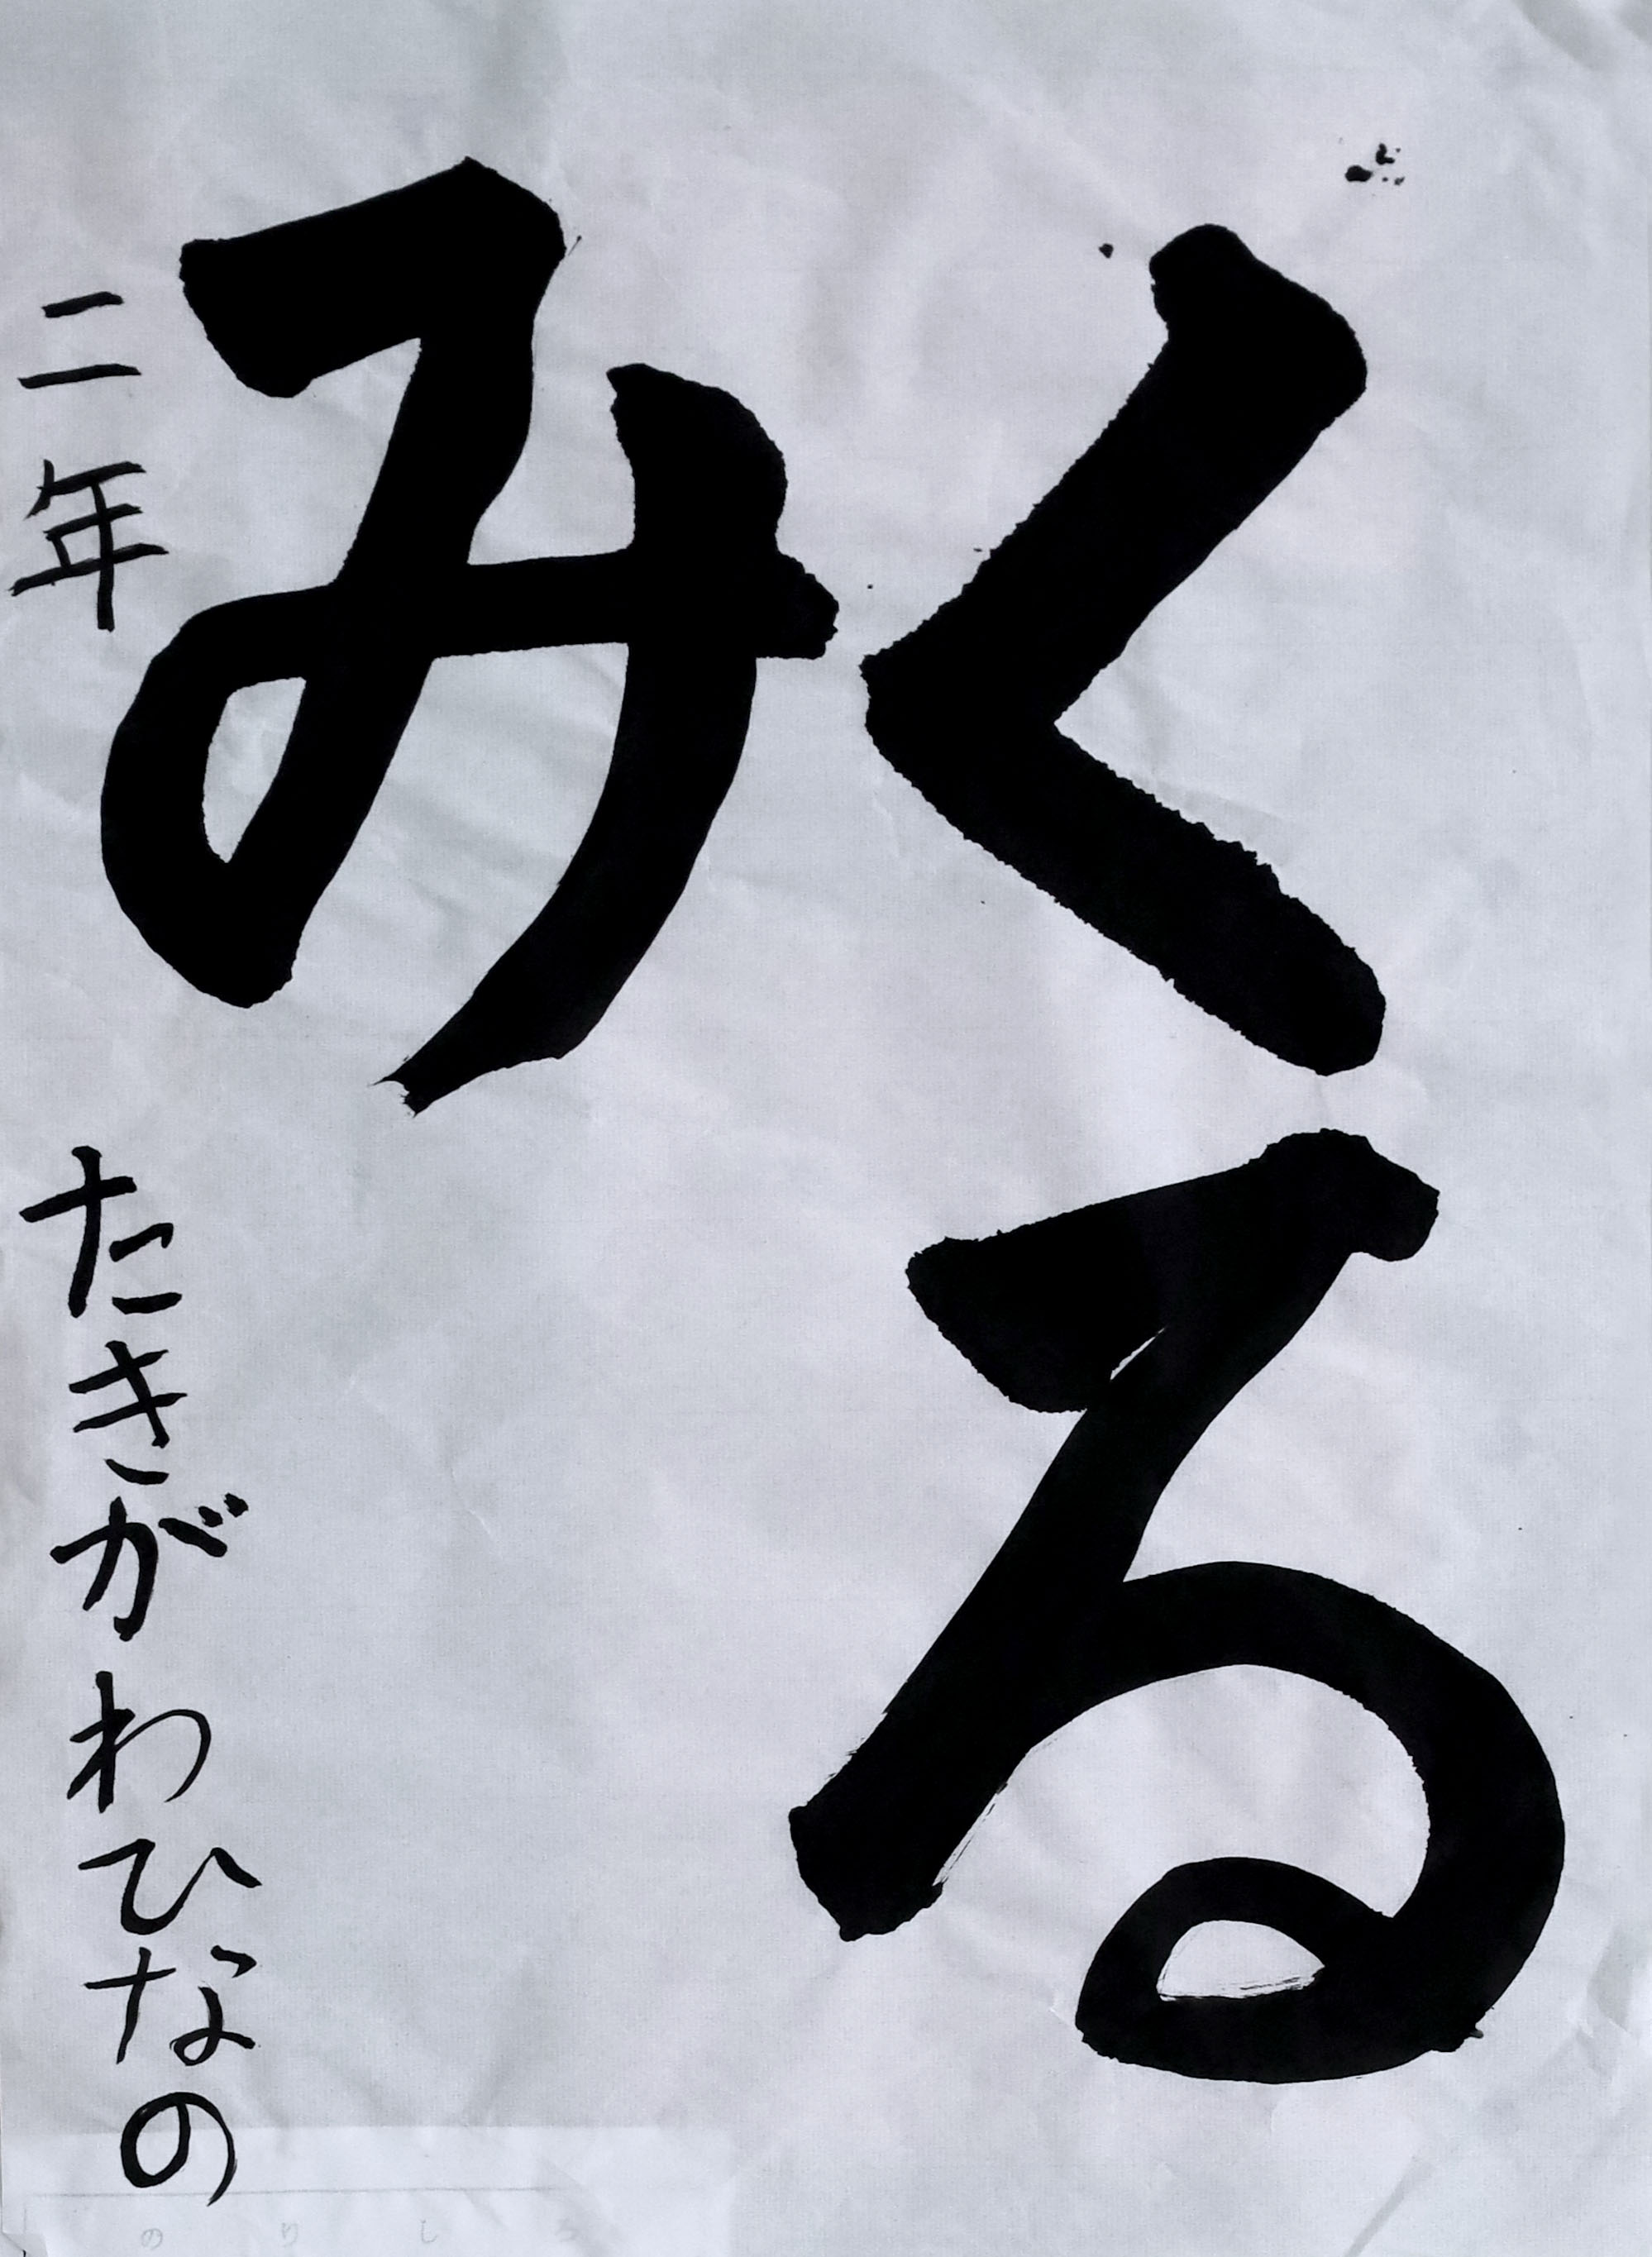 くる
み
二年 たきがわひなの
のりしろ